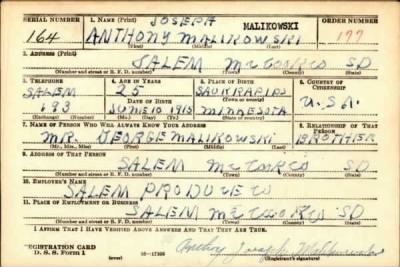 SERIAL NUMBER
164
1. NAME (Print)
JOSEPH
ANTHONY MALIKOWSKI
MALIKOWSKI
(First) (Middle) (Last)
ORDER NUMBER
177
2. ADDRESS (Print)
SALEM McCOOK CO SD
(Number and street or R. F. D. number) (Town) (County) (State)
3. TELEPHONE
SALEM
193
(Exchange) (Number)
4. AGE IN YEARS
25
DATE OF BIRTH
JUNE 10 1915
(Mo.) (Day) (Yr.)
5. PLACE OF BIRTH
SAUK RAPIDS
(Town or county)
MINNESOTA
(State or country)
6. COUNTRY OF CITIZENSHIP
U.S.A.
7. NAME OF PERSON WHO WILL ALWAYS KNOW YOUR ADDRESS
MR. GEORGE MALIKOWSKI
(Mr., Mrs., Miss) (First) (Middle) (Last)
8. RELATIONSHIP OF THAT PERSON
BROTHER
9. ADDRESS OF THAT PERSON
SALEM McCOOK CO SD
(Number and street or R. F. D. number) (Town) (County) (State)
10. EMPLOYER'S NAME
SALEM PRODUCE CO
11. PLACE OF EMPLOYMENT OR BUSINESS
SALEM McCOOK CO SD
(Number and street or R. F. D. number) (Town) (County) (State)
I AFFIRM THAT I HAVE VERIFIED ABOVE ANSWERS AND THAT THEY ARE TRUE.
REGISTRATION CARD
D. S. S. Form 1
(over)
Anthony Joseph Malikowski
(Registrant's signature)